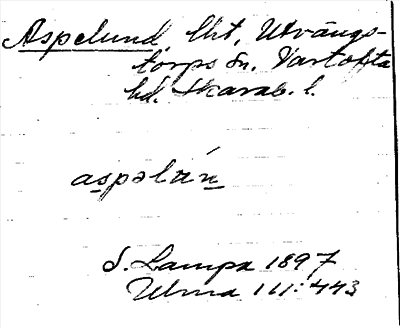 Aspelund, lht, Utvängs-
torps sn. Vartofta
hd. Skarab. l.
aspəlán
S. Lampa 1897
Ulma 111:443